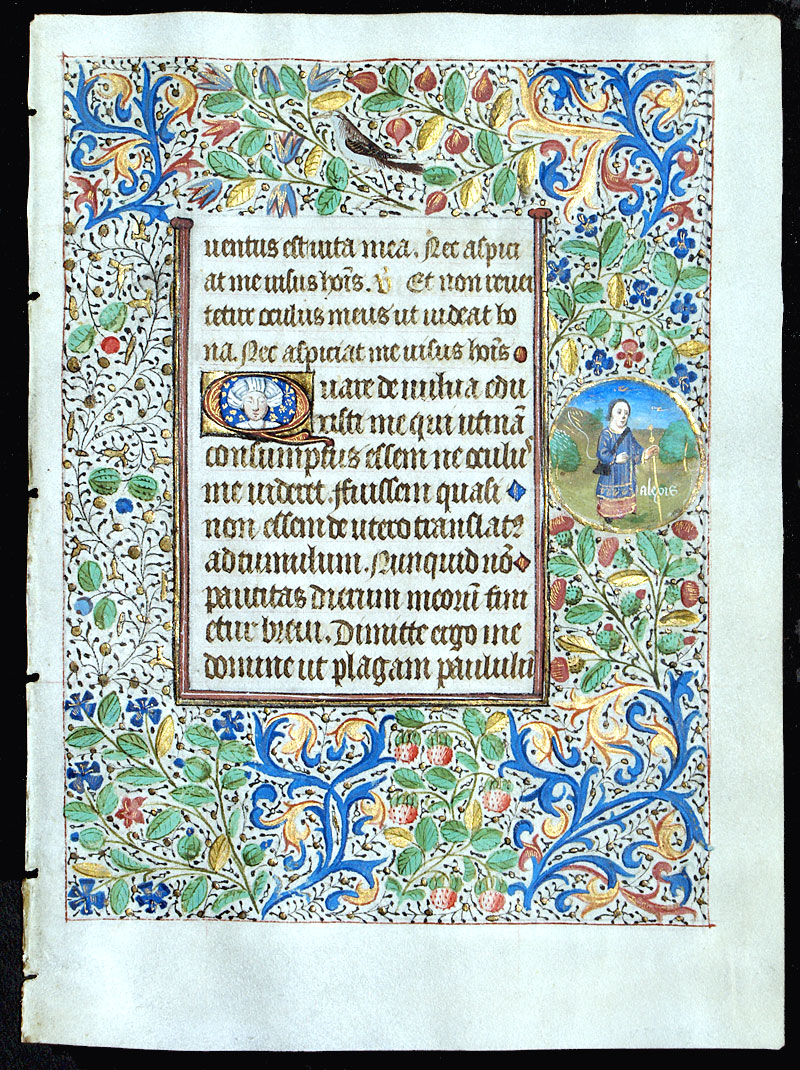 uentus est uita mea. Nec aspici
at me uisus hoīs. ℣ Et non reuer
tetur oculus meus ut uideat bo
na. Nec aspiciat me uisus hoīs
Quare de uulua edu
xisti me qui utinā
consumptus essem ne oculus
me uideret. Fuissem quasi
non essem de utero translat9
ad tumulum. Nunquid nō
paucitas dierum meorū fini
etur breui. Dimitte ergo me
domine ut plagam paululū